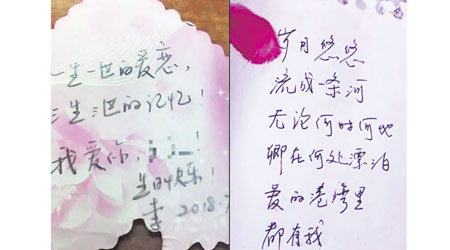 一生一世的爱恋,
三生三世的记忆!
我爱你,!
生日快乐!
李 2018.7
岁月悠悠
流成一条河
无论何时何地
卿在何处漂泊
爱的港湾里
都有我